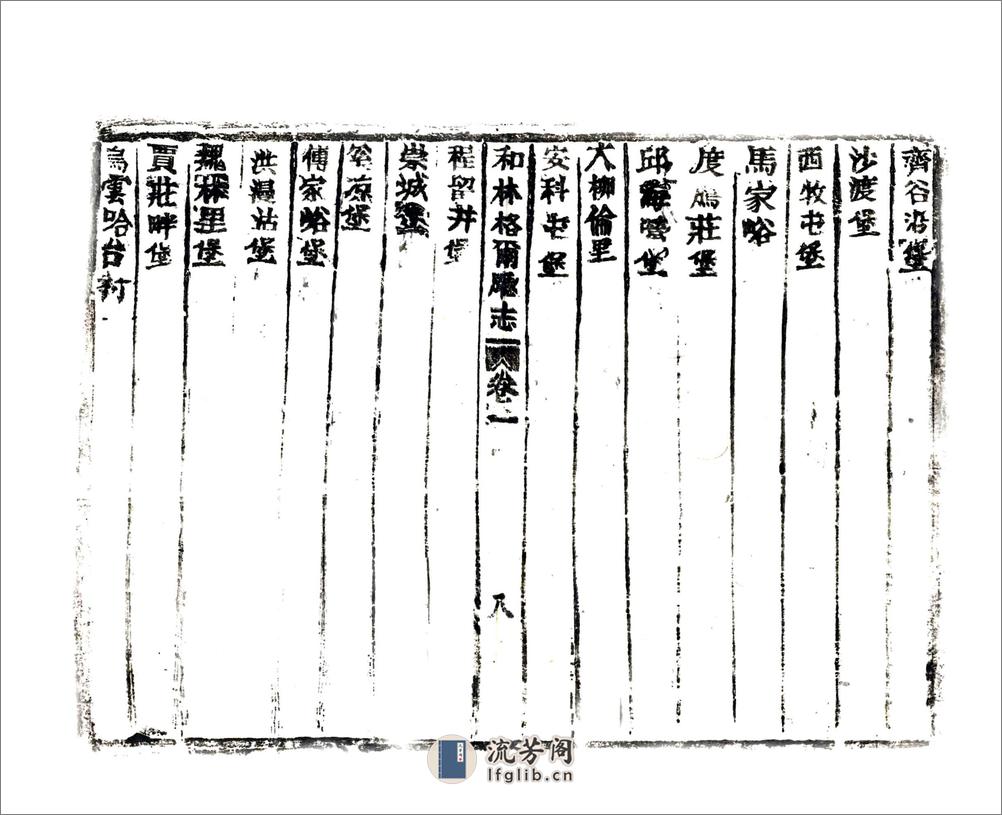 齊谷沿堡
沙渡堡
西牧屯堡
馬家峪
度鴈莊堡
邱堡
大柳倫里
安科屯堡
和林格爾廳志 卷一
八
程留井堡
崇城堡
涼堡
傅家峪堡
洪漫沾堡
魏林里堡
賈莊畔堡
烏雲哈台村
流芳阁
lfglib.cn